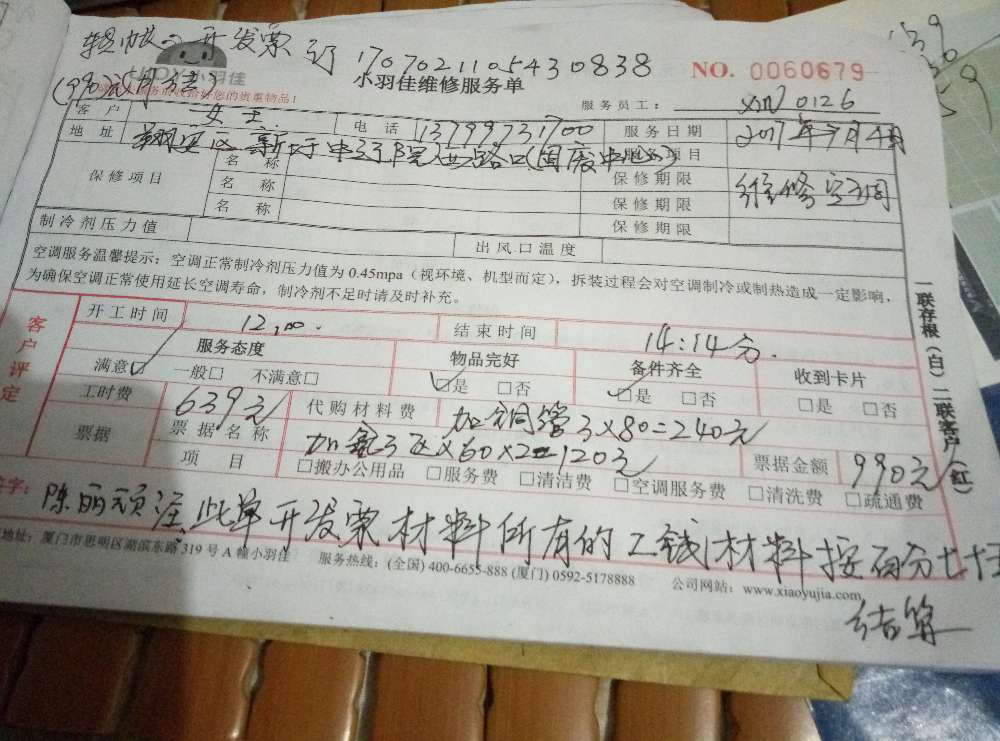 开发票 订 1707021105430838
小羽佳
小羽佳维修服务单
NO. 0060679
您的贵重物品！
服务员工： xm70126
客户 女士 电话 13799731700 服务日期 2017年7月4日
地址 翔安区新圩 路口 服务项目 维修空调
保修项目 名称 保修期限
名称 保修期限
名称 保修期限
制冷剂压力值 出风口温度
空调服务温馨提示：空调正常制冷剂压力值为0.45mpa（视环境、机型而定），拆装过程会对空调制冷或制热造成一定影响，
为确保空调正常使用延长空调寿命，制冷剂不足时请及时补充。
一联存根（白）二联客户（红）
客户评定
开工时间 12:00. 结束时间 14:14分.
服务态度 物品完好 备件齐全 收到卡片
满意□ 一般□ 不满意□ □是 □否 □是 □否 □是 □否
工时费 639元 代购材料费 加铜管3×80=240元
票据 票据名称 加氟 ×60×2=120元 票据金额 990元
项目 □搬办公用品 □服务费 □清洁费 □空调服务费 □清洗费 □疏通费
签字： 陈丽 注 此单开发票材料所有的工钱材料按百分七十
结算
地址：厦门市思明区湖滨东路319号A幢小羽佳 服务热线：(全国) 400-6655-888 (厦门) 0592-5178888 公司网站：www.xiaoyujia.com